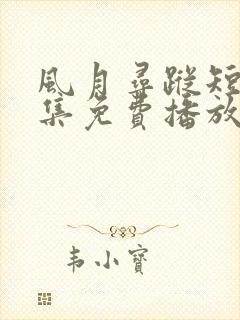 風月尋蹤短
集免費播放
韦小寶